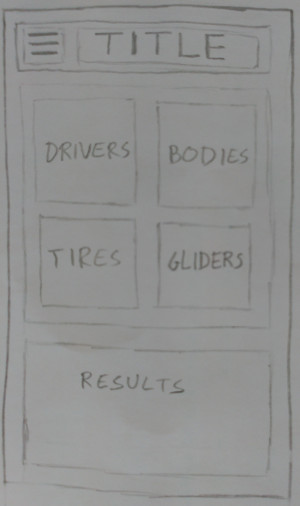 TITLE
DRIVERS BODIES
TIRES GLIDERS
RESULTS